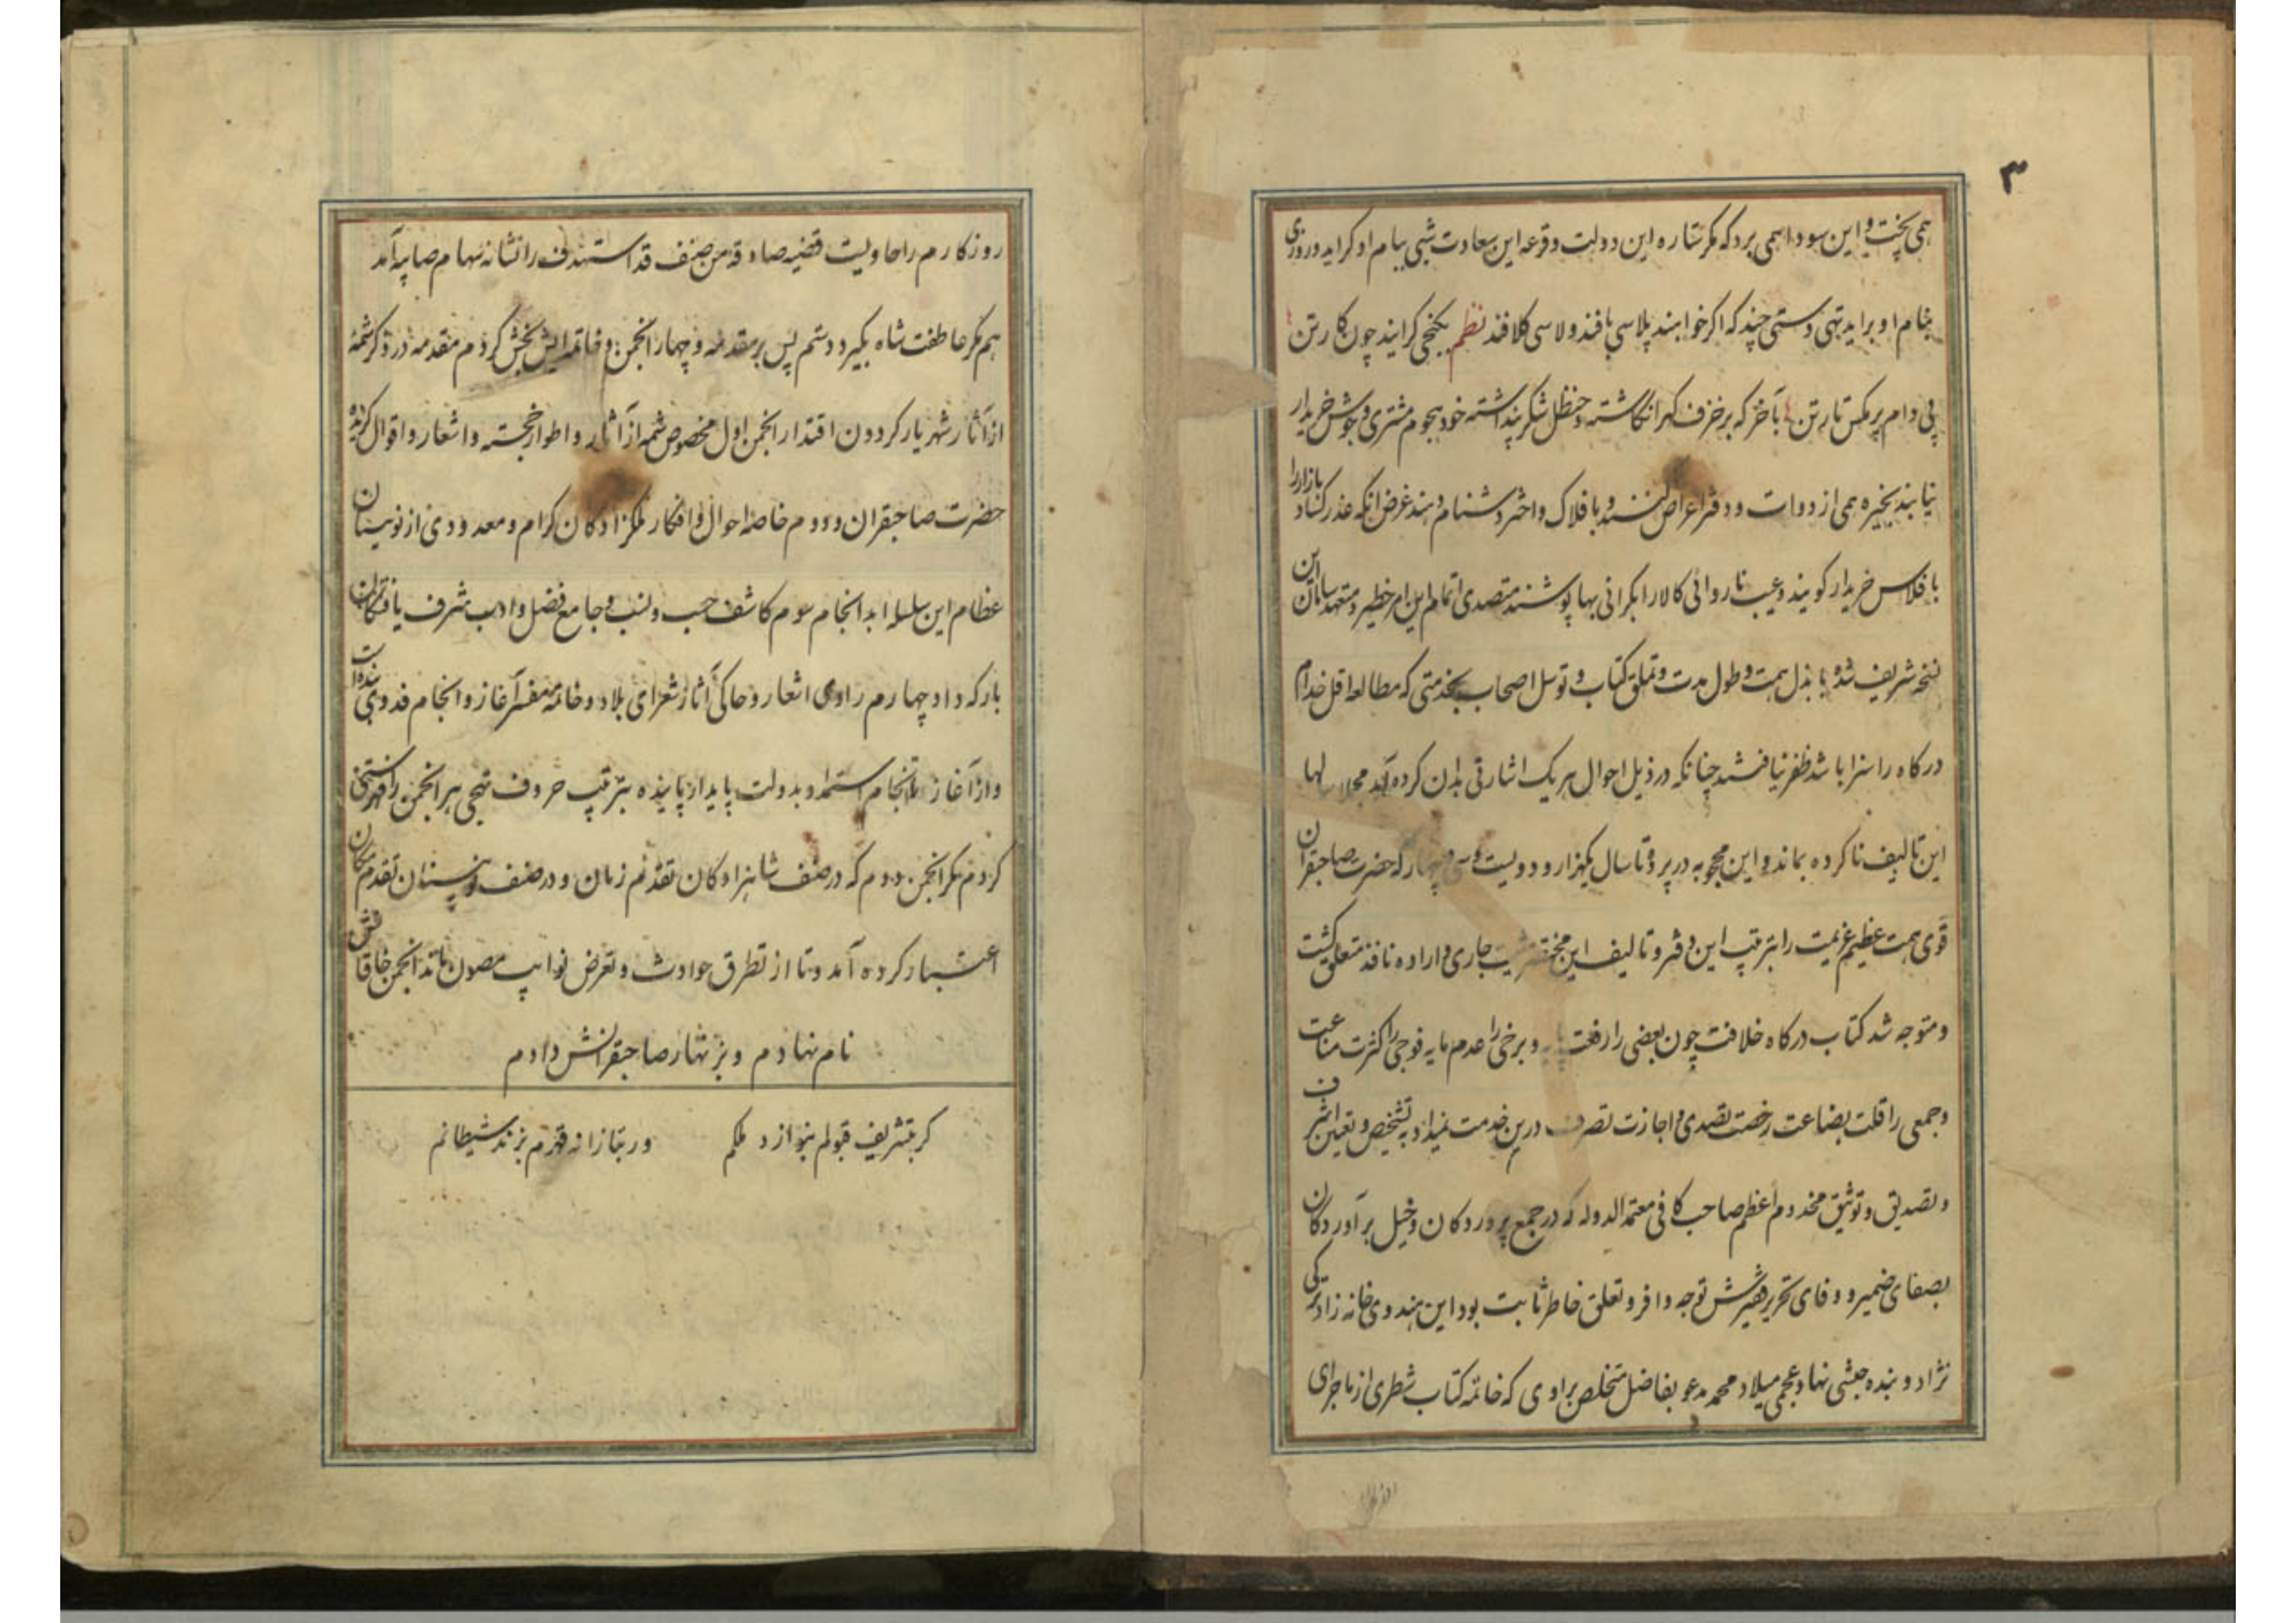 ۳
همی پخت و این سودا همی برد که مگر ستاره این دولت و قرعه این سعادت شبی ببام او کراید و روزی
بنام او براید تهی دستی چند که اکر خواهند پلاسی بافند و لاسی کلافند نظم یکنجی کرایند چون کار تن
پی دام پر مکس تار تن بآخر که بر خزف کهر انکاشته و حنظل شکر پنداشته خود هجوم مشتری و جوش خریدار
نیابند بخیره همی از دوات و دفتر اعراض کنند و بافلاک و اختر دشنام دهند غرض آنکه عذر کساد بازار را
بافلاس خریدار کویند و عیب ناروائی کالا را بکرانی بها پوشند متصدی اتمام این امر خطیر و متعهد سامان این
نسخه شریف شده با بذل همت و طول مدت و تملق کتاب و توسل اصحاب بخدمتی که مطالعه اقل خدام
درکاه را سزا باشد ظفر نیافتند چنانکه در ذیل احوال هر یک اشارتی بدان کرده آید مجملا سالها
این تالیف ناکرده بماند و این محجوبه در پرده تا سال یکهزار و دویست و سی و چهار که حضرت صاحبقران
قوی همت عظیم عزیمت را بترتیب این دفتر و تالیف این مختصر مشیت جاری و اراده نافذ متعلق کشت
و متوجه شد کتاب درکاه خلافت چون بعضی را رفعت پایه و برخی را عدم مایه فوجی را کثرت مناعت
و جمعی را قلت بضاعت رخصت تصدی و اجازت تصرف درین خدمت نمیداد به تشخیص و تعیین اشرف
و تصدیق و توثیق مخدوم اعظم صاحب کافی معتمد الدوله که در جمع پروردکان و خیل برآوردکان
بصفای ضمیر و وفای تحریر فقیرش توجه وافر و تعلق خاطر ثابت بود این هندوی خانه زاد ترکی
نژاد و بنده حبشی نهاد عجمی میلاد محمد مدعو بفاضل متخلص براوی که خاتمه کتاب شطری از ماجرای
روزکارم را حاویست قضیه صادقه من صنف قد استهدف را نشانه سهام صایبه آمد
هم مکر عاطفت شاه بکیرد دستم پس بر مقدمه و چهار انجمن و خاتمه ایش بخش کردم مقدمه در ذکر شمه
از آثار شهریار کردون اقتدار انجمن اول مخصوص شمه از آثار و اطوار خجسته و اشعار و اقوال کزیده
حضرت صاحبقران و دوم خاصه احوال و افکار ملکزادکان کرام و معدودی از نویینان
عظام این سلسله ابد انجام سوم کاشف حسب و نسب و جامع فضل و ادب شرف یافتکان
بارکه داد چهارم راوی اشعار و حاکی آثار شعرای بلاد و خاتمه مفسر آغاز و انجام فدوی بندوات
و از آغاز تا انجام استمداد بدولت پایدار پاینده بترتیب حروف تهجی هر انجمن را فهرستی
کردم مکر انجمن دوم که در صنف شاهزادکان تقدم زمان و در صنف نویینان تقدم مکان
اعتبار کرده آمد و تا از تطرق حوادث و تعرض نوایب مصون ماند انجمن خاقانش
نام نهادم و بزنهار صاحبقرانش دادم
کر بتشریف قبولم بنوازد ملکم ور بتازانه قهرم بزند شیطانم